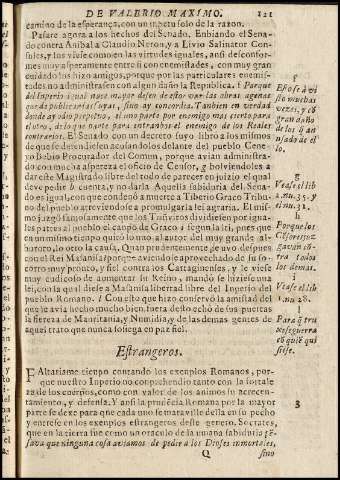 DE VALERIO MAXIMO. 121
camino de la esperança, con un inpetu solo de la razon.
Passare agora a los hechos del Senado. Enbiando el Sena-
do contra Anibal a Claudio Neron, y a Livio Salinator Con-
sules, y los viesse como en las virtudes iguales, ansi desconfor-
mes muy asperamente entre si con enemistades, con muy gran
cuidado los hizo amigos, porque por las particulares enemis-
tades no administrassen con algun daño la Republica. f Porque
del Inperio igual nace mayor desseo de estorvar las obras agenas
que de publicar las suyas, sino ay concordia. Tanbien en verdad
donde ay odio perpetuo, el uno parte por enemigo mas cierto para
el otro, de lo que parte para entranbos el enemigo de los Reales
contrarios. El Senado con un decreto suyo libro a los mismos
de que se defendiessen acusandolos delante del pueblo Ceneo
Bebio Procurador del Comun, porque avian administra-
do con mucha aspereza el oficio de Censor, g bolviendoles a
dar este Magistrado libre del todo de parecer en juizio el qual
deve pedir la cuenta, y no darla Aquella sabiduria del Sena-
do es igual, con que condenò a muerte a Tiberio Graco Tribu-
no del pueblo atreviendose a promulgar la lei agraria. El mis-
mo juzgò famosamente que los Tiunviros dividiessen por igua-
les partes al pueblo el canpo de Graco i segun la lei, pues que
en un mismo tienpo quitò lo uno al autor del muy grande al-
boroto, lo otro la causa. Quan prudentemente se uvo despues
con el Rei Masanisa! porque aviendose aprovechado de su so-
corro muy pronto, y fiel contra los Cartagineses, y le viesse
muy cudicioso de aumentar su Reino, mandò se hiziesse una
lei, con la qual diesse a Masanisa libertad libre del Inperio del
pueblo Romano. l Con esto que hizo conservò la amistad del
que le avia hecho mucho bien, fuera desto echò de sus puertas
la fiereza de Mauritania, y Numidia, y de las demas gentes de
aquel trato que nunca sossiega en paz fiel.
Estrangeros.
FAltariame tienpo contando los exenplos Romanos, por-
que nuestro Inperio no conprehendio tanto con la fortale
za de los cuerpos, como con valor de los animos su acrecen-
tamiento, y defensa. Y ansi la prudecia Romana por la mayor
parte se dexe para que cada uno se maraville della en su pecho
y entrese en los exenplos estrangeros deste genero. Socrates,
que en la tierra fue como un oraculo de la umana sabiduria pẽ-
sava que ninguna cosa aviamos de pedir a los Dioses inmortales,
Q sino
f
Esto se à vi
sto muchas
vezes, y cõ
gran daño
de los q̃ an
usado dello.
g
Vease el lib
2. nu. 35. y
el nu. 32.
h
Porque los
tra todos
los demas.
i
Vease el lib
1. nu 28.
l
Para q̃ tru
xesse guerra
cõ quiẽ qui
siesse.
3